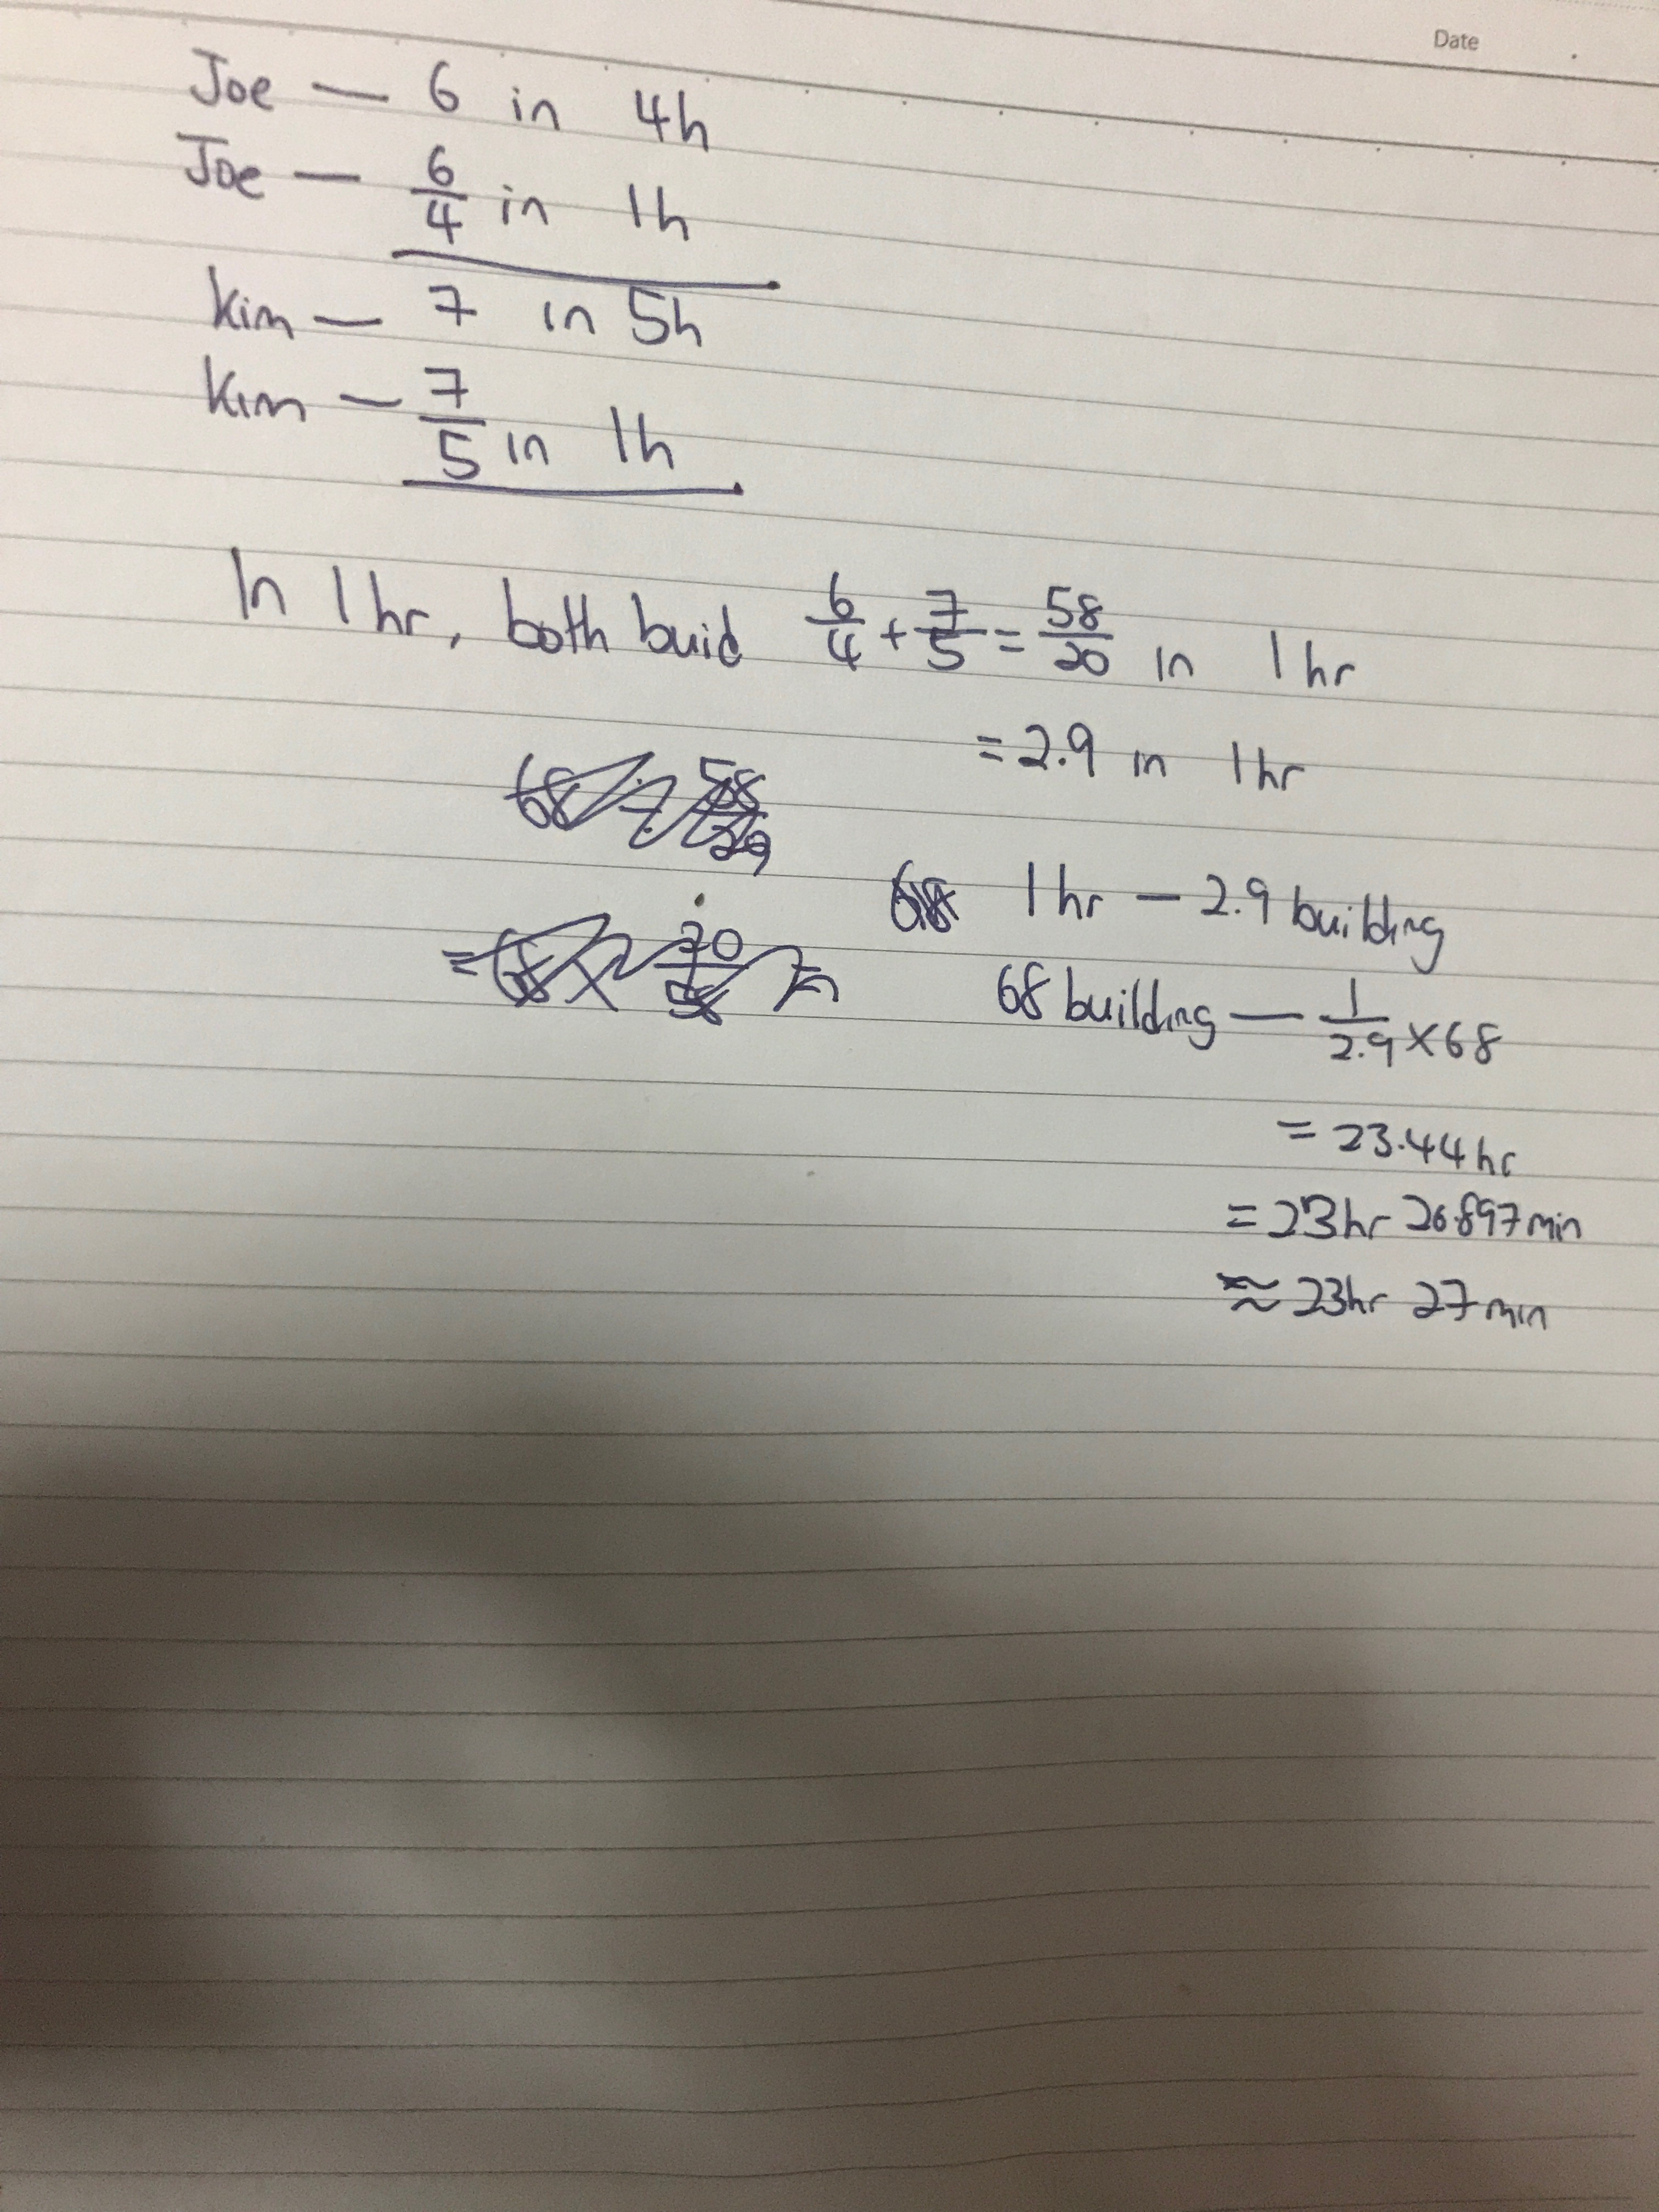 Date
Joe — 6 in 4h
Joe — 6/4 in 1h
Kim — 7 in 5h
Kim — 7/5 in 1h
In 1 hr, both buid 6/4 + 7/5 = 58/20 in 1 hr
= 2.9 in 1 hr
1 hr — 2.9 building
68 building — 1/2.9 × 68
= 23.44 hr
= 23 hr 26.897 min
≈ 23 hr 27 min